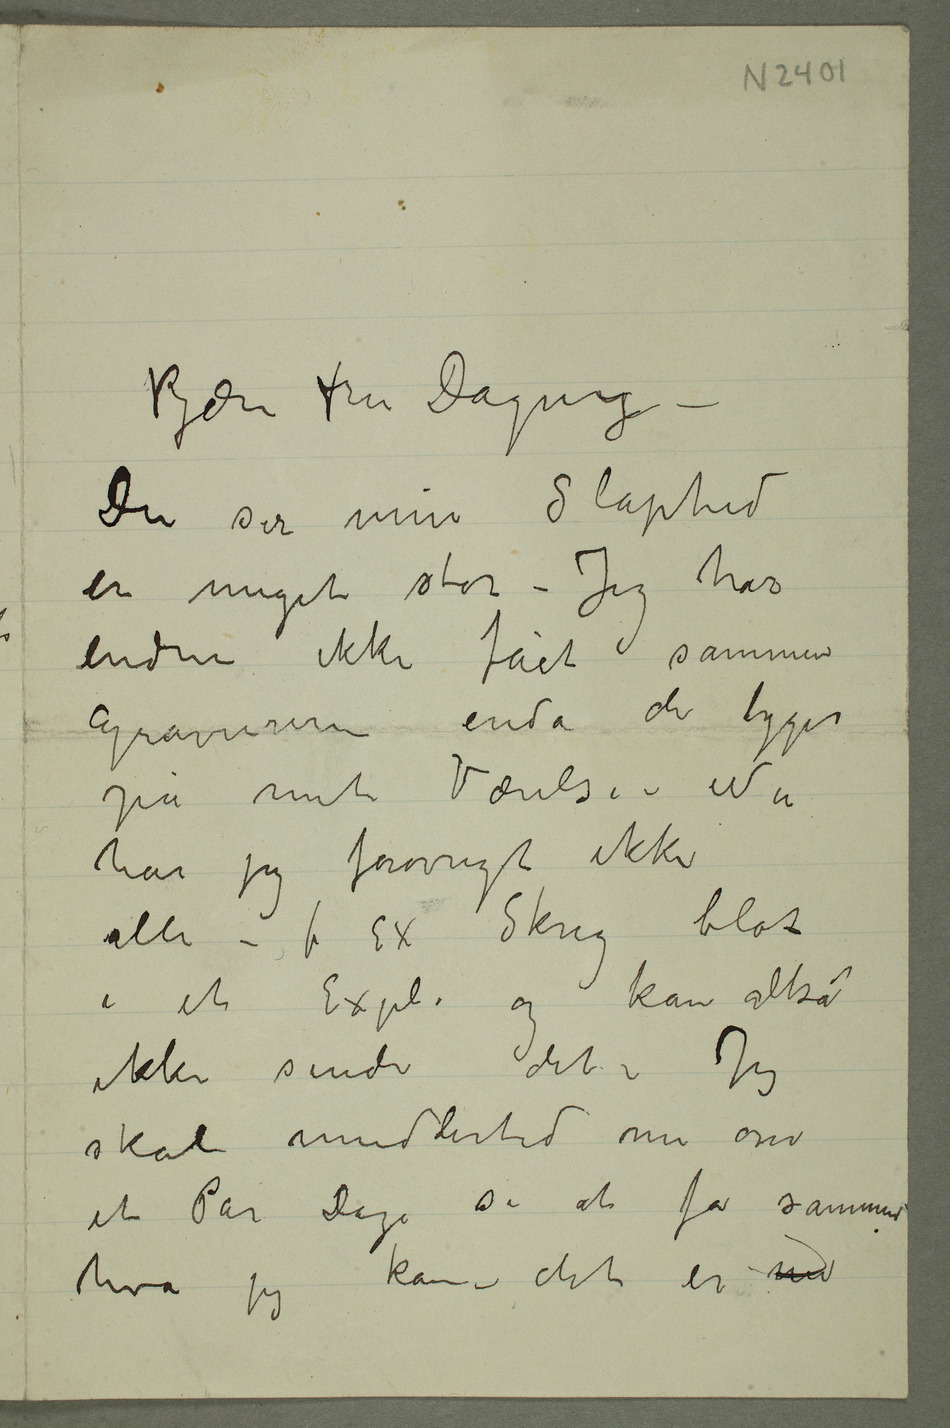 N 2401
Kjære Fru Dagny –
Du ser min Slaphed
er meget stor – Jeg har
endnu ikke fået sammen
gravurerne enda de ligger
på mit Værelse – Nu
har jeg forøvrigt ikke
alle – f Ex Skrig blot
i et Expl. og kan altså
ikke sende det – Jeg
skal imidlertid nu om
et Par Dage se at få sammen
hva jeg kan – det er